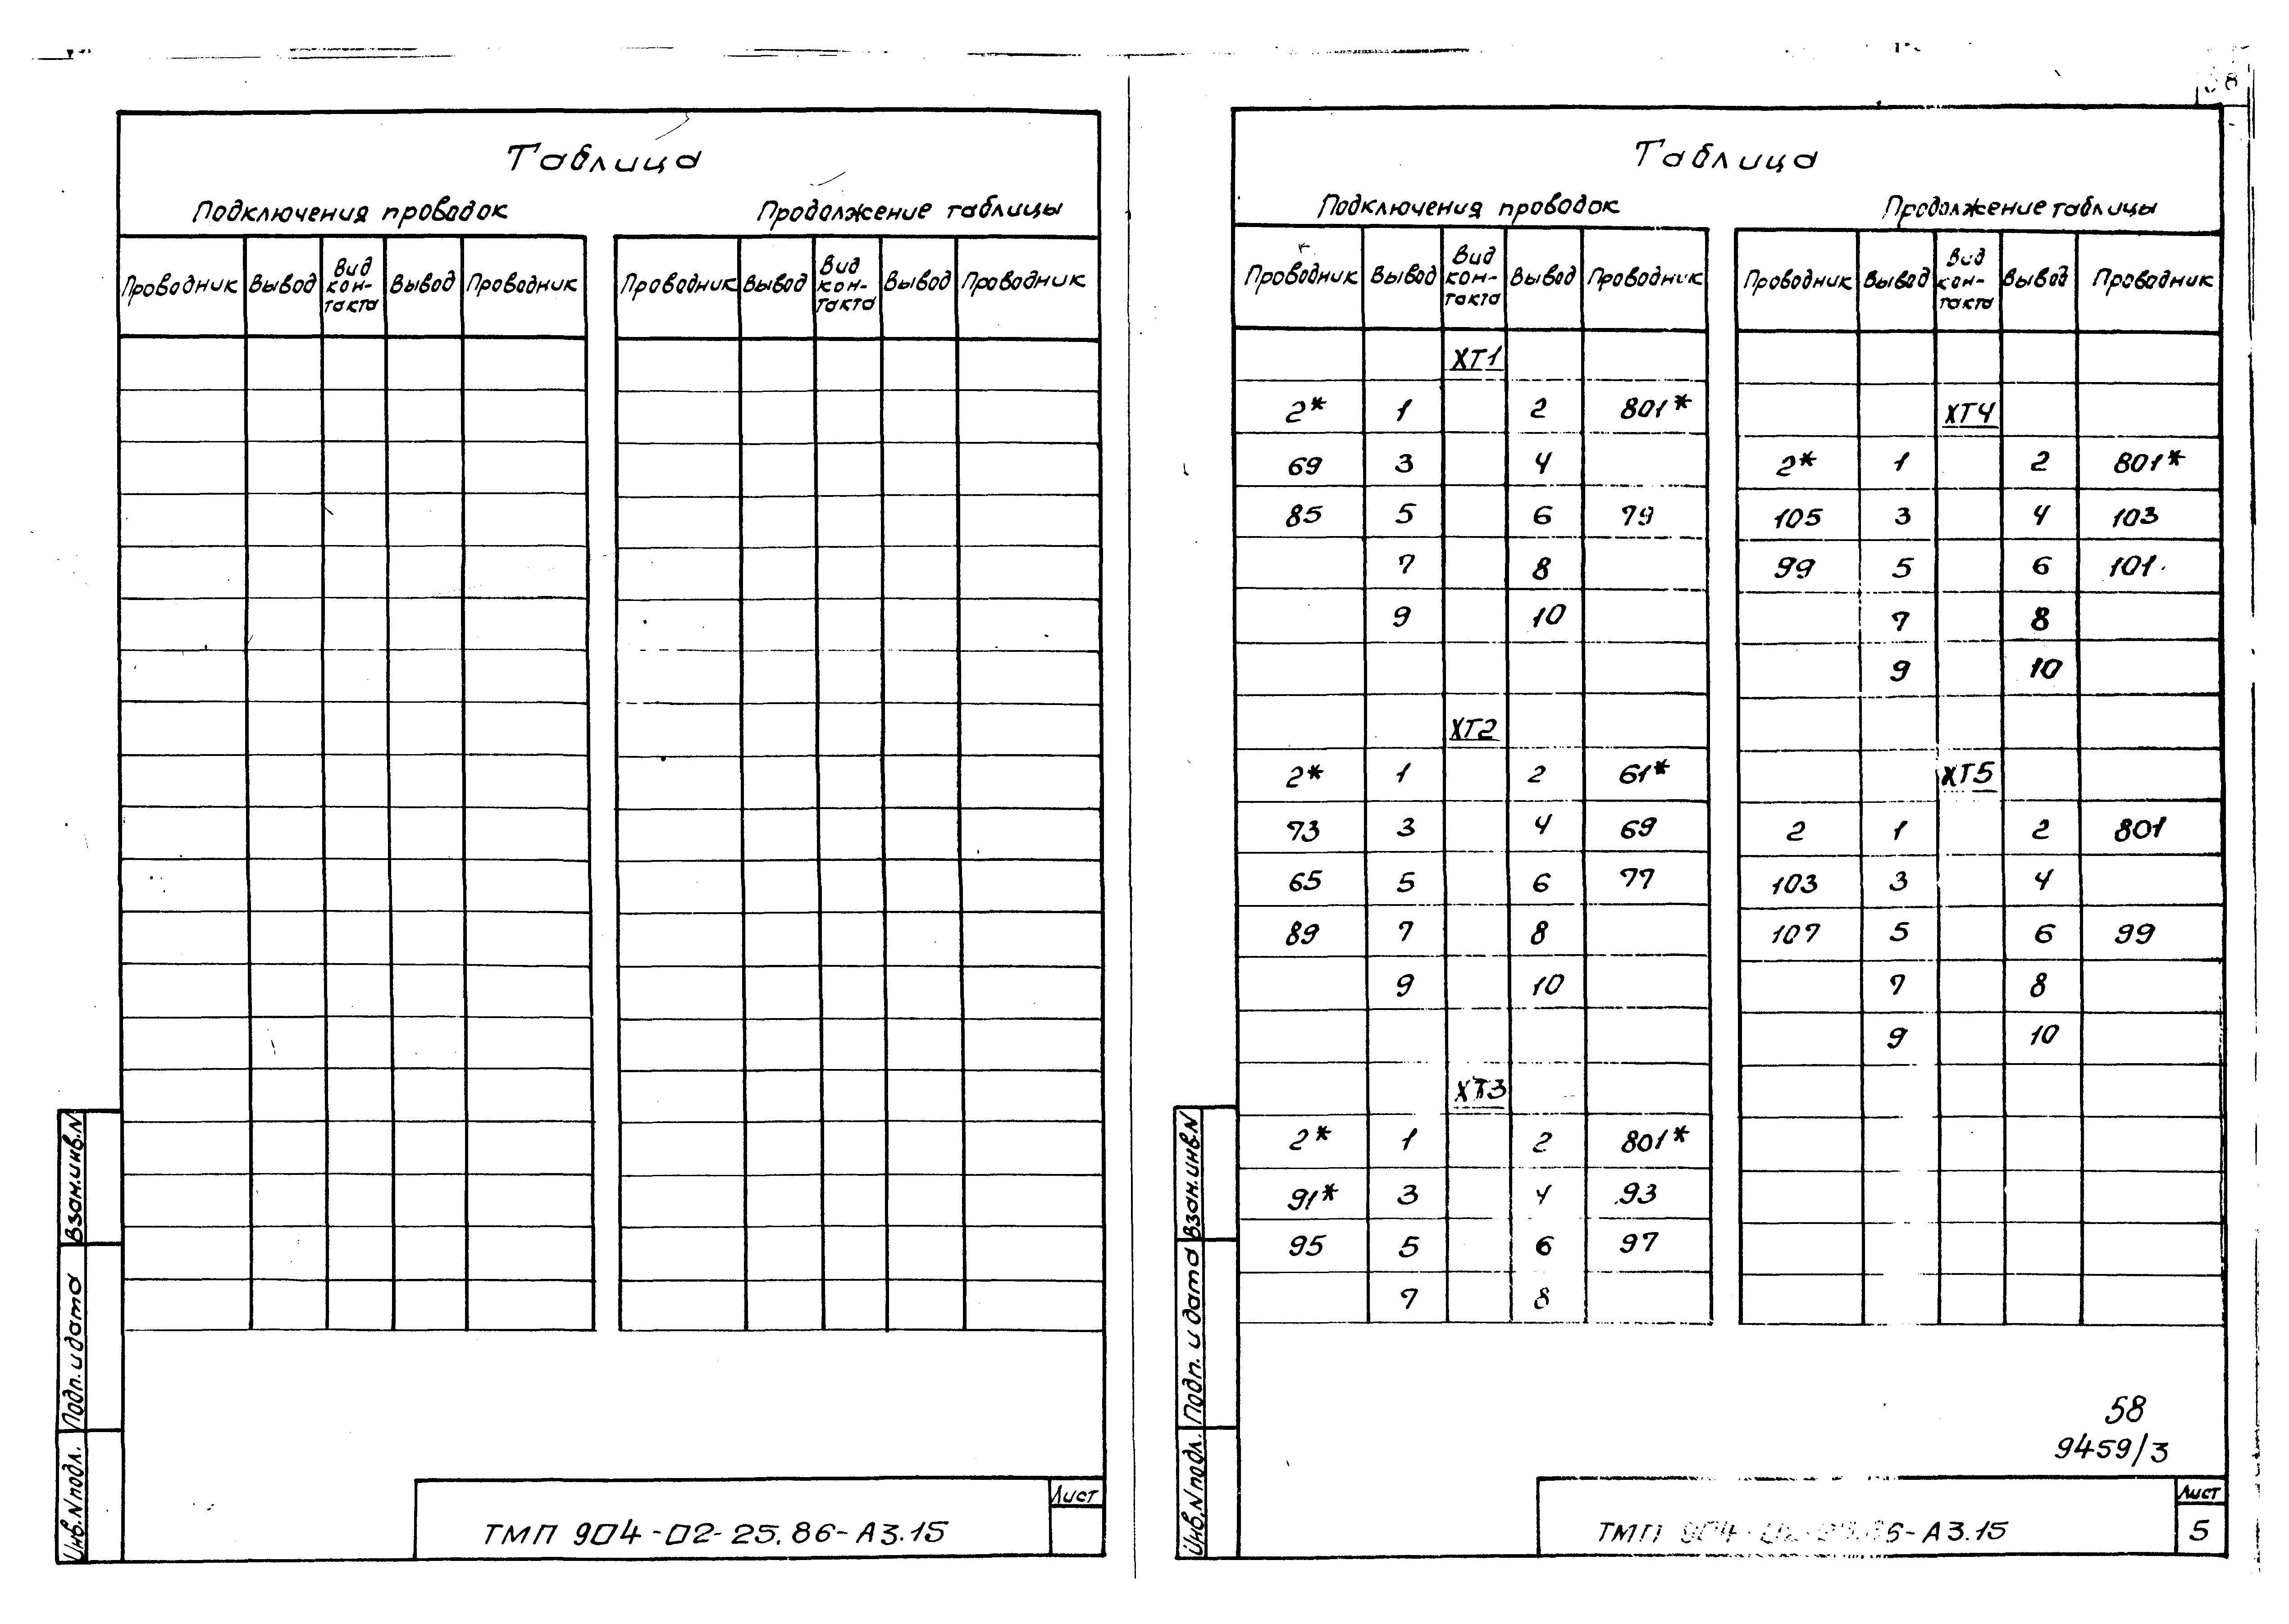 Таблица
Подключения проводок
Продолжение таблицы
Проводник Вывод Вид кон-такта Вывод Проводник
Проводник Вывод Вид кон-такта Вывод Проводник
Взам.инв.N
Подп. и дата
Инв.N подл.
Лист
ТМП 904-02-25.86-А3.15
Таблица
Подключения проводок
Продолжение таблицы
Проводник Вывод Вид кон-такта Вывод Проводник
ХТ1
2* 1 2 801*
69 3 4
85 5 6 79
7 8
9 10
ХТ2
2* 1 2 61*
73 3 4 69
65 5 6 77
89 7 8
9 10
ХТ3
2* 1 2 801*
91* 3 4 93
95 5 6 97
7 8
Проводник Вывод Вид кон-такта Вывод Проводник
ХТ4
2* 1 2 801*
105 3 4 103
99 5 6 101
7 8
9 10
ХТ5
2 1 2 801
103 3 4
107 5 6 99
7 8
9 10
Взам.инв.N
Подп. и дата
Инв.N подл.
58
9459/3
Лист
ТМП 904-02-25.86-А3.15
5